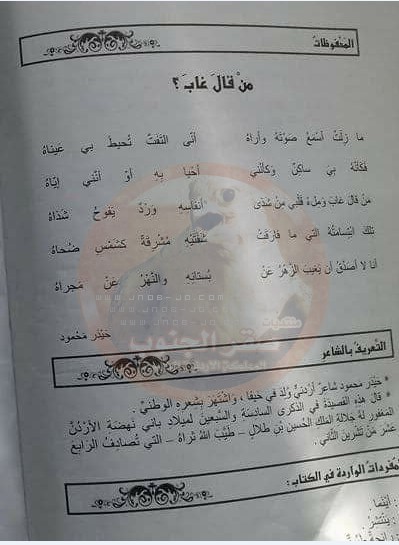 المحفوظات
منْ قالَ غابَ ؟
ما زلتُ أسمعُ صَوْتَهُ وأراهُ أنّى التفتُ تُحيطُ بي عيناهُ
فكأنّهُ بي ساكنٌ وكأنّني أحْيا بِهِ أوْ أنّني إيّاهُ
مَنْ قالَ غابَ ومِلءُ قَلْبي مِنْ شَذى أنفاسِهِ وَرْدٌ يَفوحُ شَذاهُ
تلكَ ابتسامَتُهُ التي ما فارقَتْ شَفَتَيْهِ مُشرِقَةً كَشَمْسِ ضُحاهُ
أنا لا أصدّقُ أن يَغيبَ الزَّهْرُ عَنْ بُستانِهِ والنَّهْرُ عَنْ مَجراهُ
حَيْدَر مَحْمود
التّعريف بالشّاعر
* حَيْدَر محمود شاعرٌ أردنيٌّ وُلِدَ في حَيْفا ، واشْتَهَرَ بِشِعْرِهِ الوطنيِّ .
* قالَ هذهِ القصيدةَ في الذّكرى السادِسَةِ والسَّبعينَ لميلادِ باني نهضةِ الأردُنِّ
المَغفورِ لهُ جَلالةِ المَلِكِ الحُسَيْنِ بْنِ طَلالٍ – طَيَّبَ اللهُ ثَراهُ – التي تُصادِفُ الرّابِعَ
عَشَرَ مِنْ تشرين الثّاني .
المفردات الواردة في الكتاب :
: أينَما .
: يَنْتَشِرُ .
www.jnob-jo.com
منتديات
صقر الجنوب